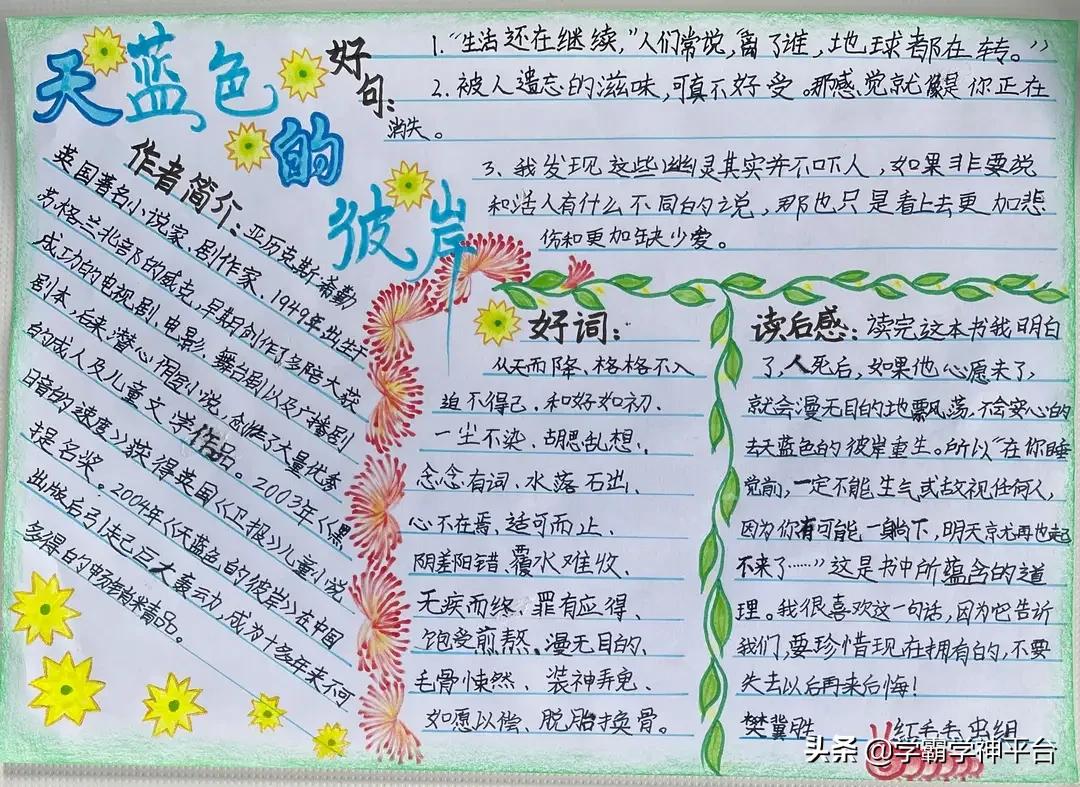 天蓝色的彼岸
好句:
1.“生活还在继续,”人们常说,离了谁,地球都在转。”
2.被人遗忘的滋味,可真不好受。那感觉就像是你正在
消失。
3.我发现这些幽灵其实并不吓人,如果非要说
和活人有什么不同的说,那也只是看上去更加悲
伤和更加缺少爱。
作者简介:亚历克斯·希勒
英国著名小说家、剧作家、1949年出生于
苏格兰北部的威克,早期创作了多部大获
成功的电视剧、电影、舞台剧以及广播剧
剧本,后来潜心于小说,创作了大量优秀
的成人及儿童文学作品。2003年《黑
日音的速度》获得英国《卫报》儿童小说
提名奖。2004年《天蓝色的彼岸》在中国
出版后引起巨大轰动,成为十多年来不可
多得的
好词:
从天而降、格格不入
迫不得己、和好如初、
一尘不染、胡思乱想、
念念有词、水落石出、
心不在焉、适可而止、
阴差阳错、覆水难收、
无疾而终、罪有应得、
饱受煎熬、漫无目的、
毛骨悚然、装神弄鬼、
如愿以偿、脱胎换骨。
读后感:读完这本书我明白
了,人死后,如果他心愿未了,
就会漫无目的地飘荡,不会安心的
去天蓝色的彼岸重生。所以“在你睡
觉前,一定不能生气或敌视任何人,
因为你有可能一躺下,明天就再也起
不来了……”这是书中所蕴含的道
理。我很喜欢这一句话,因为它告诉
我们,要珍惜现在拥有的,不要
失去以后再来后悔!
樊冀胜
红毛毛虫组
头条 @学霸学神平台